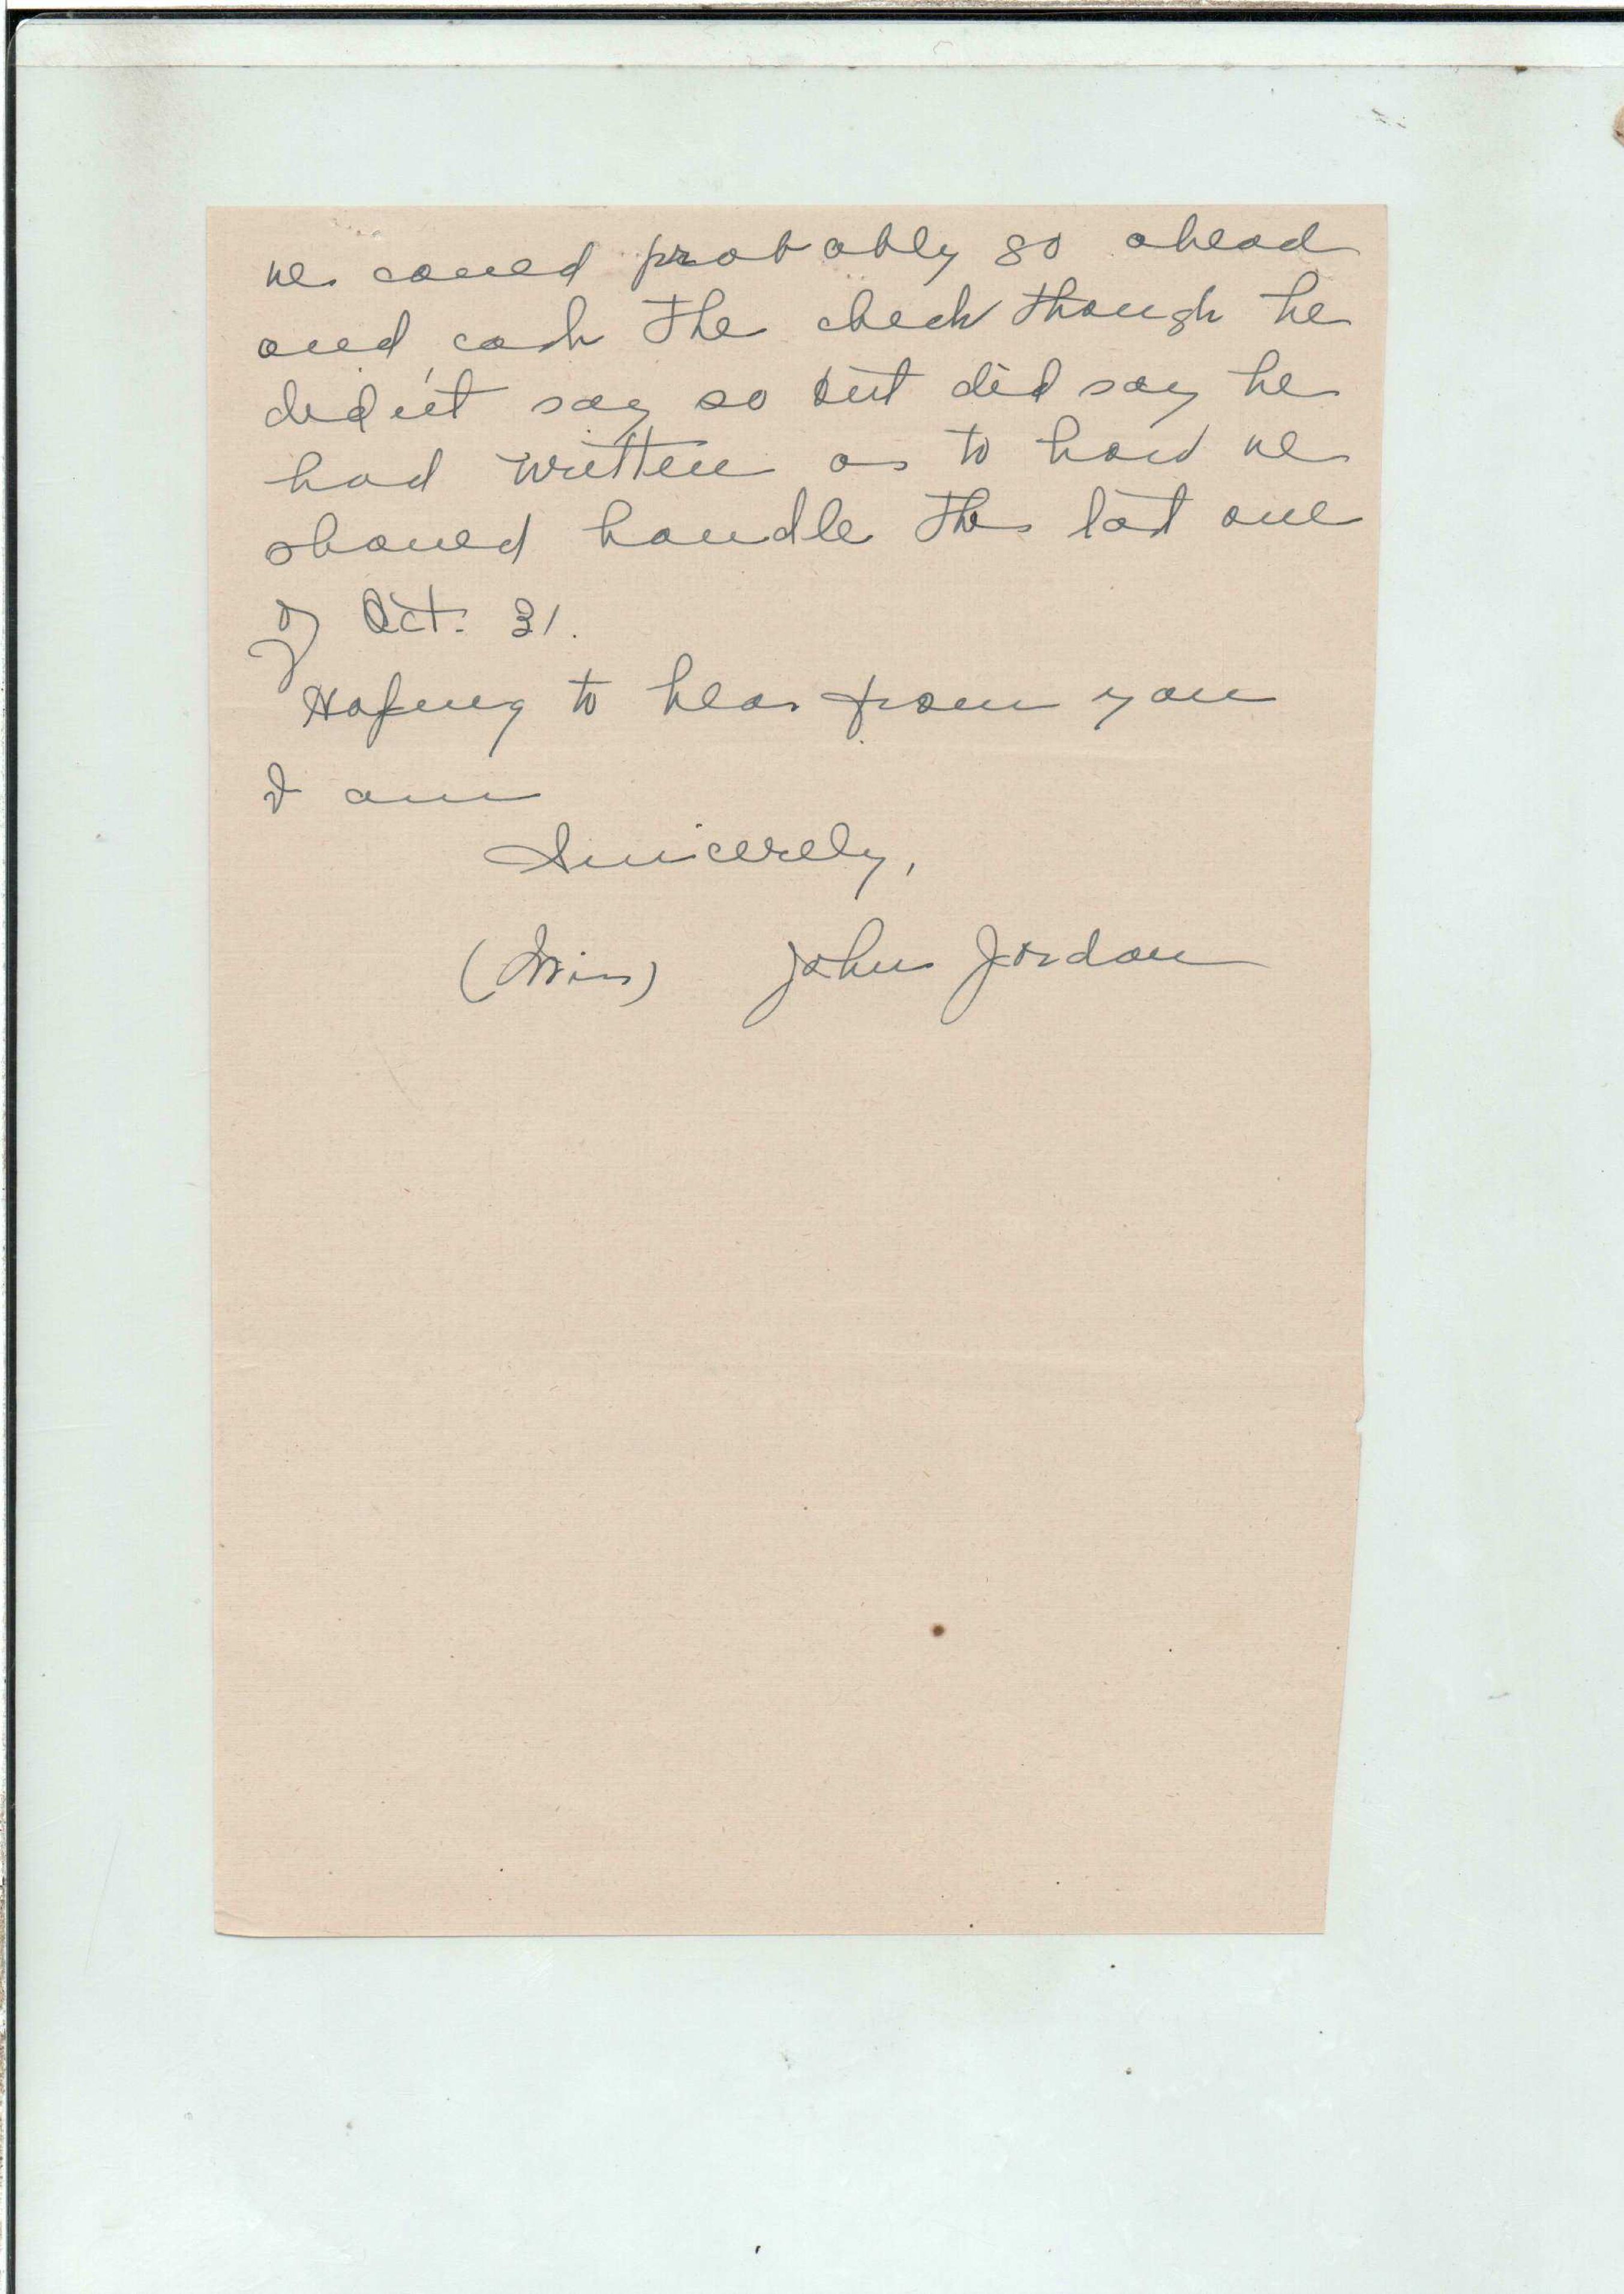 we could probably go ahead
and cash the check though he
didn't say so but did say he
had written as to how we
should handle the last one
of Oct. 31.
Hoping to hear from you
I am
Sincerely,
(Miss) John Jordan